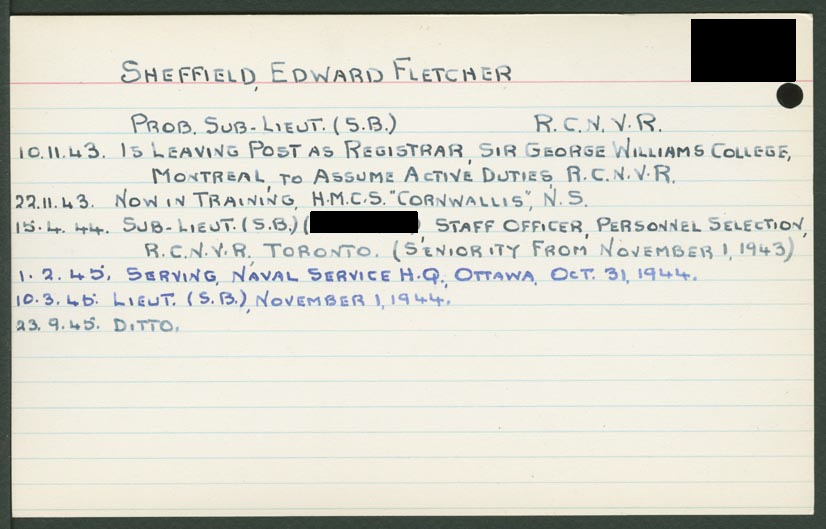 SHEFFIELD, EDWARD FLETCHER
PROB. SUB-LIEUT. (S.B.) R.C.N.V.R.
10.11.43. IS LEAVING POST AS REGISTRAR, SIR GEORGE WILLIAMS COLLEGE,
MONTREAL, TO ASSUME ACTIVE DUTIES, R.C.N.V.R.
22.11.43. NOW IN TRAINING, H.M.C.S. "CORNWALLIS", N.S.
15.4.44. SUB-LIEUT. (S.B.) ( ) STAFF OFFICER, PERSONNEL SELECTION,
R.C.N.V.R., TORONTO. (SENIORITY FROM NOVEMBER 1, 1943)
1.2.45. SERVING, NAVAL SERVICE H.Q., OTTAWA, OCT. 31, 1944.
10.3.45. LIEUT. (S.B.), NOVEMBER 1, 1944.
23.9.45. DITTO.